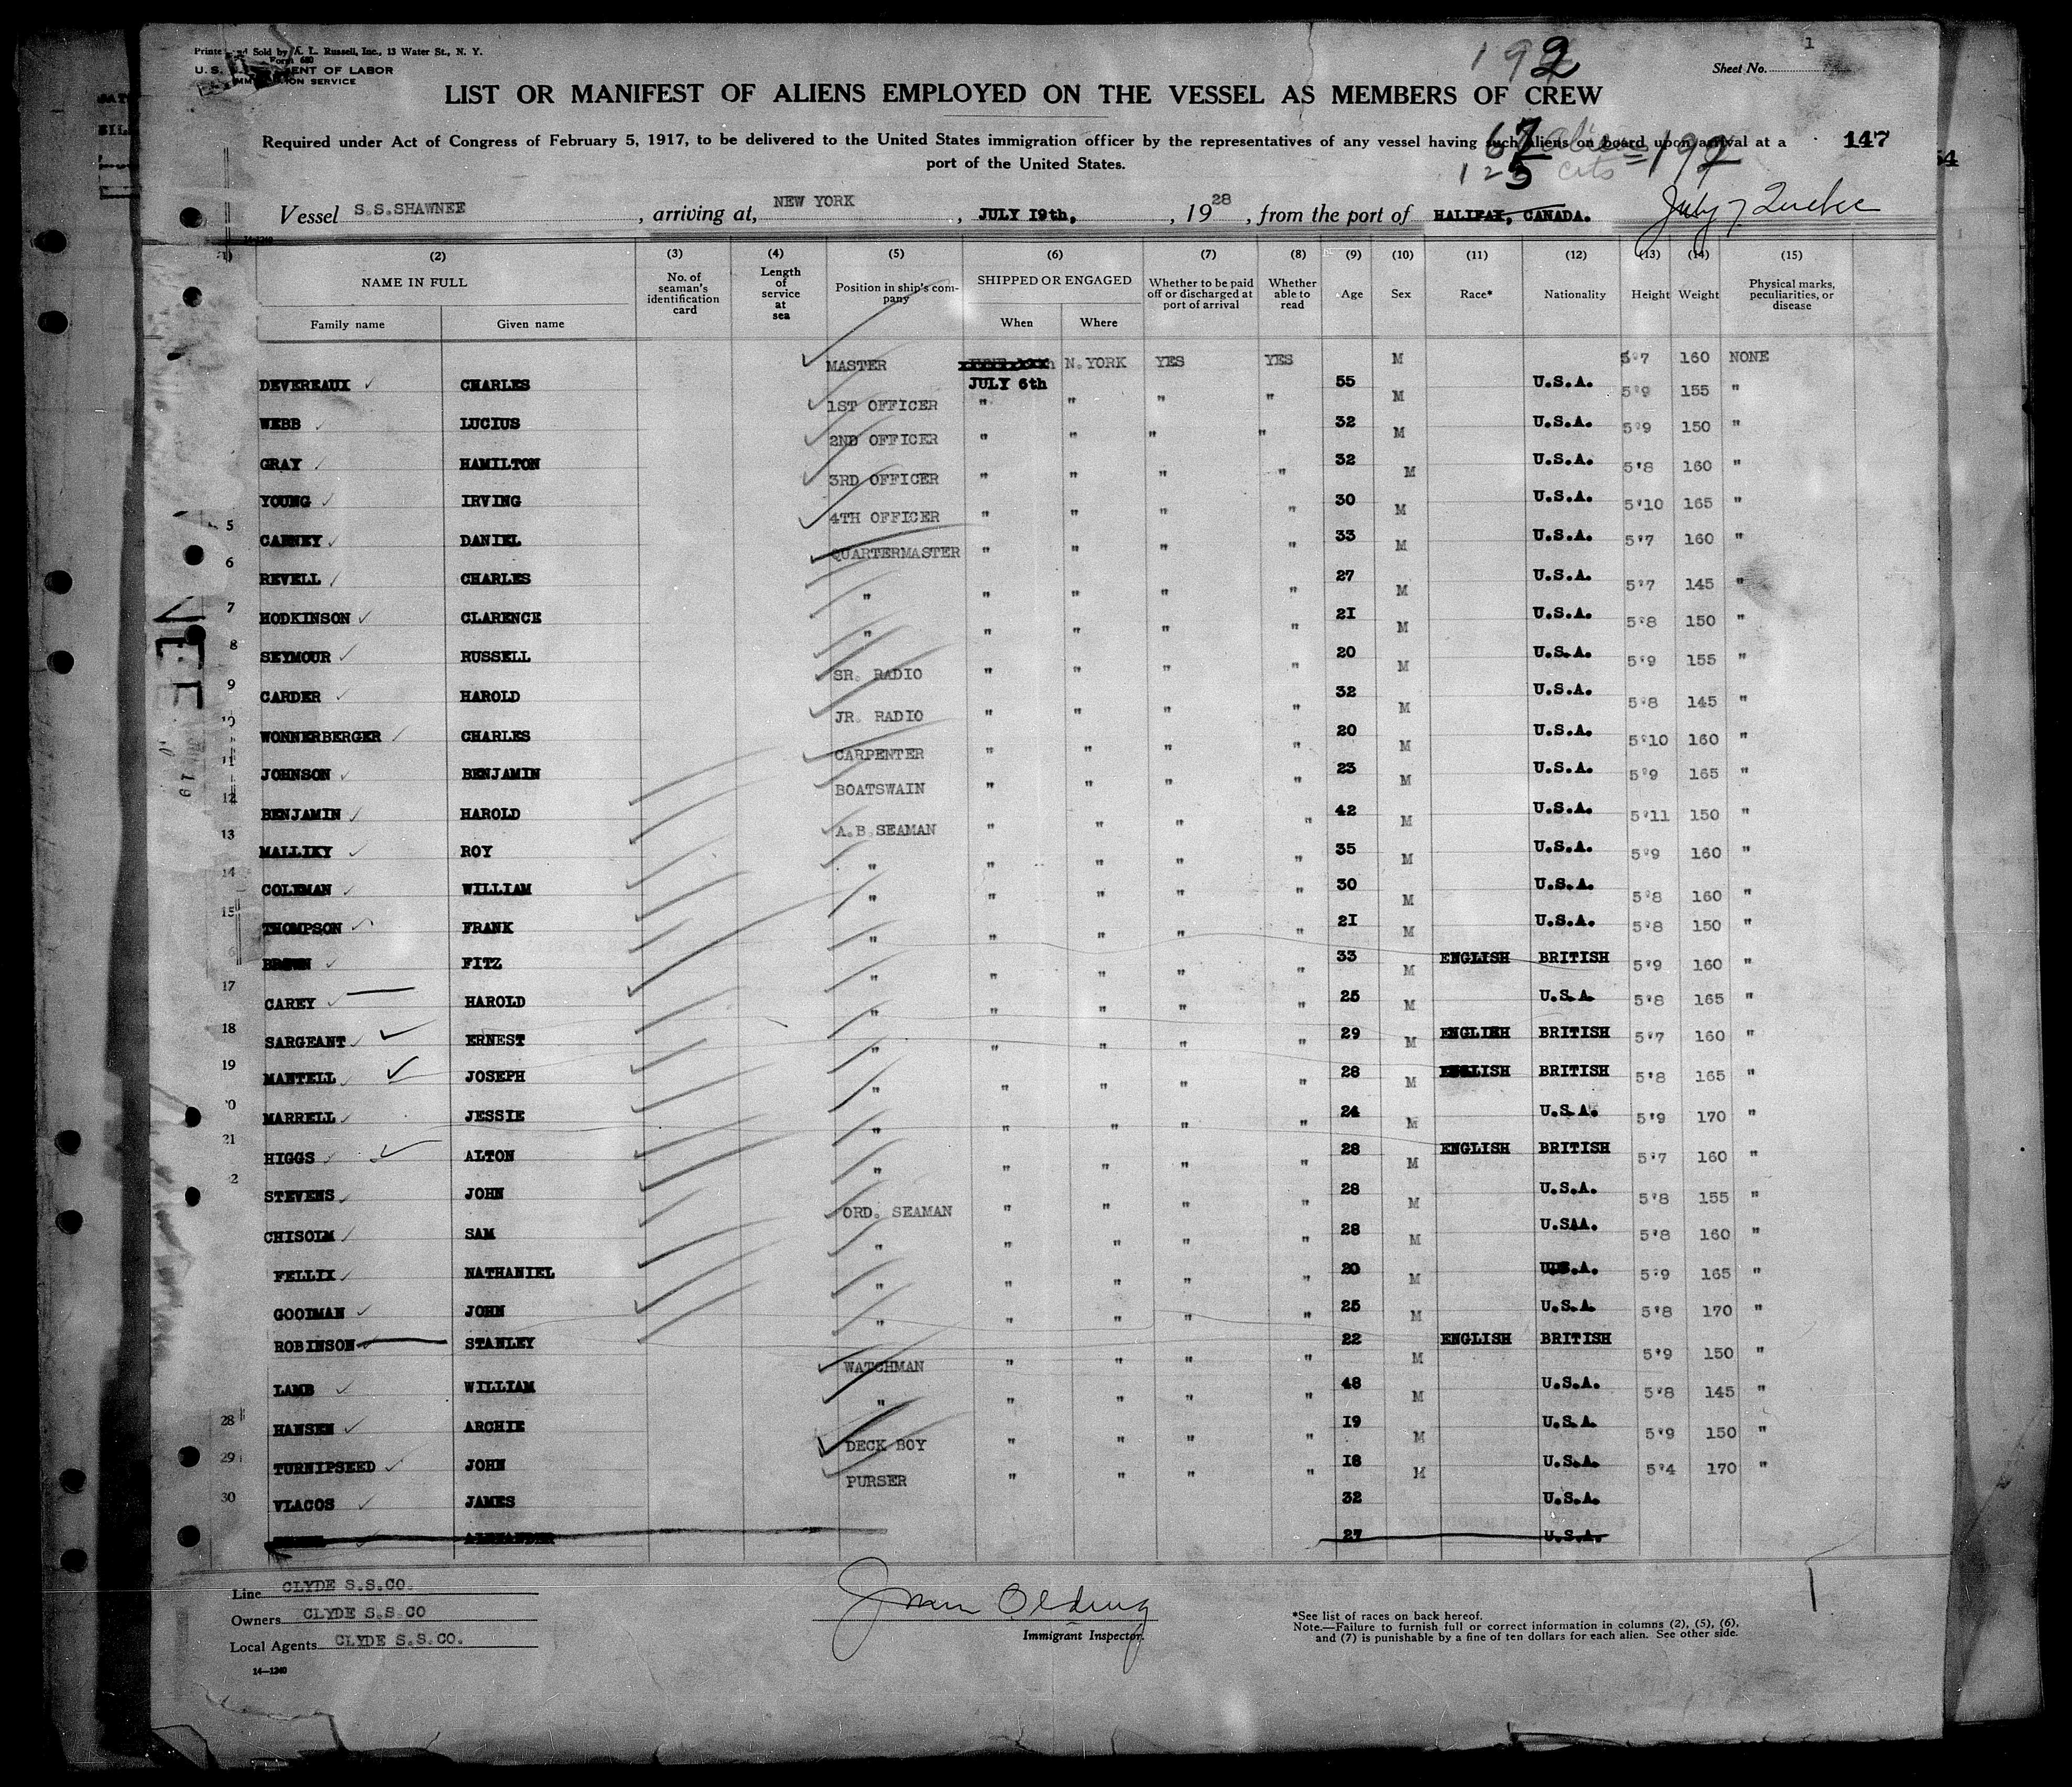 Sold by A. L. Russell, Inc., 13 Water St., N. Y.
Form 680
U. S. DEPARTMENT OF LABOR
IMMIGRATION SERVICE
192
1
Sheet No.
LIST OR MANIFEST OF ALIENS EMPLOYED ON THE VESSEL AS MEMBERS OF CREW
Required under Act of Congress of February 5, 1917, to be delivered to the United States immigration officer by the representatives of any vessel having such aliens on board upon arrival at a
port of the United States.
67 aliens
125 cits = 192
147
Vessel S.S.SHAWNEE , arriving at, NEW YORK , JULY 19th, , 1928 , from the port of HALIFAX, CANADA. July 7 Quebec
(2) (3) (4) (5) (6) (7) (8) (9) (10) (11) (12) (13) (14) (15)
NAME IN FULL No. of seaman's identification card Length of service at sea Position in ship's company SHIPPED OR ENGAGED Whether to be paid off or discharged at port of arrival Whether able to read Age Sex Race* Nationality Height Weight Physical marks, peculiarities, or disease
Family name Given name When Where
DEVEREAUX CHARLES MASTER JULY 6th N.YORK YES YES 55 M U.S.A. 5'7 160 NONE
WEBB LUCIUS 1ST OFFICER " " " " 32 M U.S.A. 5'9 155 "
GRAY HAMILTON 2ND OFFICER " " " " 32 M U.S.A. 5'9 150 "
YOUNG IRVING 3RD OFFICER " " " " 30 M U.S.A. 5'8 160 "
5 CARNEY DANIEL 4TH OFFICER " " " " 33 M U.S.A. 5'10 165 "
6 REVELL CHARLES QUARTERMASTER " " " " 27 M U.S.A. 5'7 160 "
7 HODKINSON CLARENCE " " " " " 21 M U.S.A. 5'7 145 "
8 SEYMOUR RUSSELL " " " " " 20 M U.S.A. 5'8 150 "
9 CARDER HAROLD SR. RADIO " " " " 32 M U.S.A. 5'9 155 "
10 WONNERBERGER CHARLES JR. RADIO " " " " 20 M U.S.A. 5'8 145 "
11 JOHNSON BENJAMIN CARPENTER " " " " 23 M U.S.A. 5'10 160 "
12 BENJAMIN HAROLD BOATSWAIN " " " " 42 M U.S.A. 5'9 165 "
13 MALLIKY ROY A.B.SEAMAN " " " " 35 M U.S.A. 5'11 150 "
14 COLEMAN WILLIAM " " " " " 30 M U.S.A. 5'9 160 "
15 THOMPSON FRANK " " " " " 21 M U.S.A. 5'8 160 "
6 BROWN FITZ " " " " " 33 M ENGLISH BRITISH 5'8 150 "
17 CAREY HAROLD " " " " " 25 M U.S.A. 5'9 160 "
18 SARGEANT ERNEST " " " " " 29 M ENGLISH BRITISH 5'8 165 "
19 MANTELL JOSEPH " " " " " 28 M ENGLISH BRITISH 5'7 160 "
0 MARRELL JESSIE " " " " " 24 M U.S.A. 5'8 165 "
21 HIGGS ALTON " " " " " 28 M ENGLISH BRITISH 5'9 170 "
2 STEVENS JOHN " " " " " 28 M U.S.A. 5'7 160 "
CHISOLM SAM ORD. SEAMAN " " " " 28 M U.SAA. 5'8 155 "
FELLIX NATHANIEL " " " " " 20 M U.S.A. 5'8 160 "
GOODMAN JOHN " " " " " 25 M U.S.A. 5'9 165 "
ROBINSON STANLEY " " " " " 22 M ENGLISH BRITISH 5'8 170 "
LAMB WILLIAM WATCHMAN " " " " 48 M U.S.A. 5'9 150 "
28 HANSEN ARCHIE " " " " " 19 M U.S.A. 5'8 145 "
29 TURNIPSEED JOHN DECK BOY " " " " 18 M U.S.A. 5'9 150 "
30 VLACOS JAMES PURSER " " " " 32 M U.S.A. 5'4 170 "
ALEXANDER 27 U.S.A.
Line CLYDE S.S.CO.
Owners CLYDE S.S.CO
Local Agents CLYDE S.S.CO.
14—1240
Immigrant Inspector.
*See list of races on back hereof.
Note.—Failure to furnish full or correct information in columns (2), (5), (6),
and (7) is punishable by a fine of ten dollars for each alien. See other side.